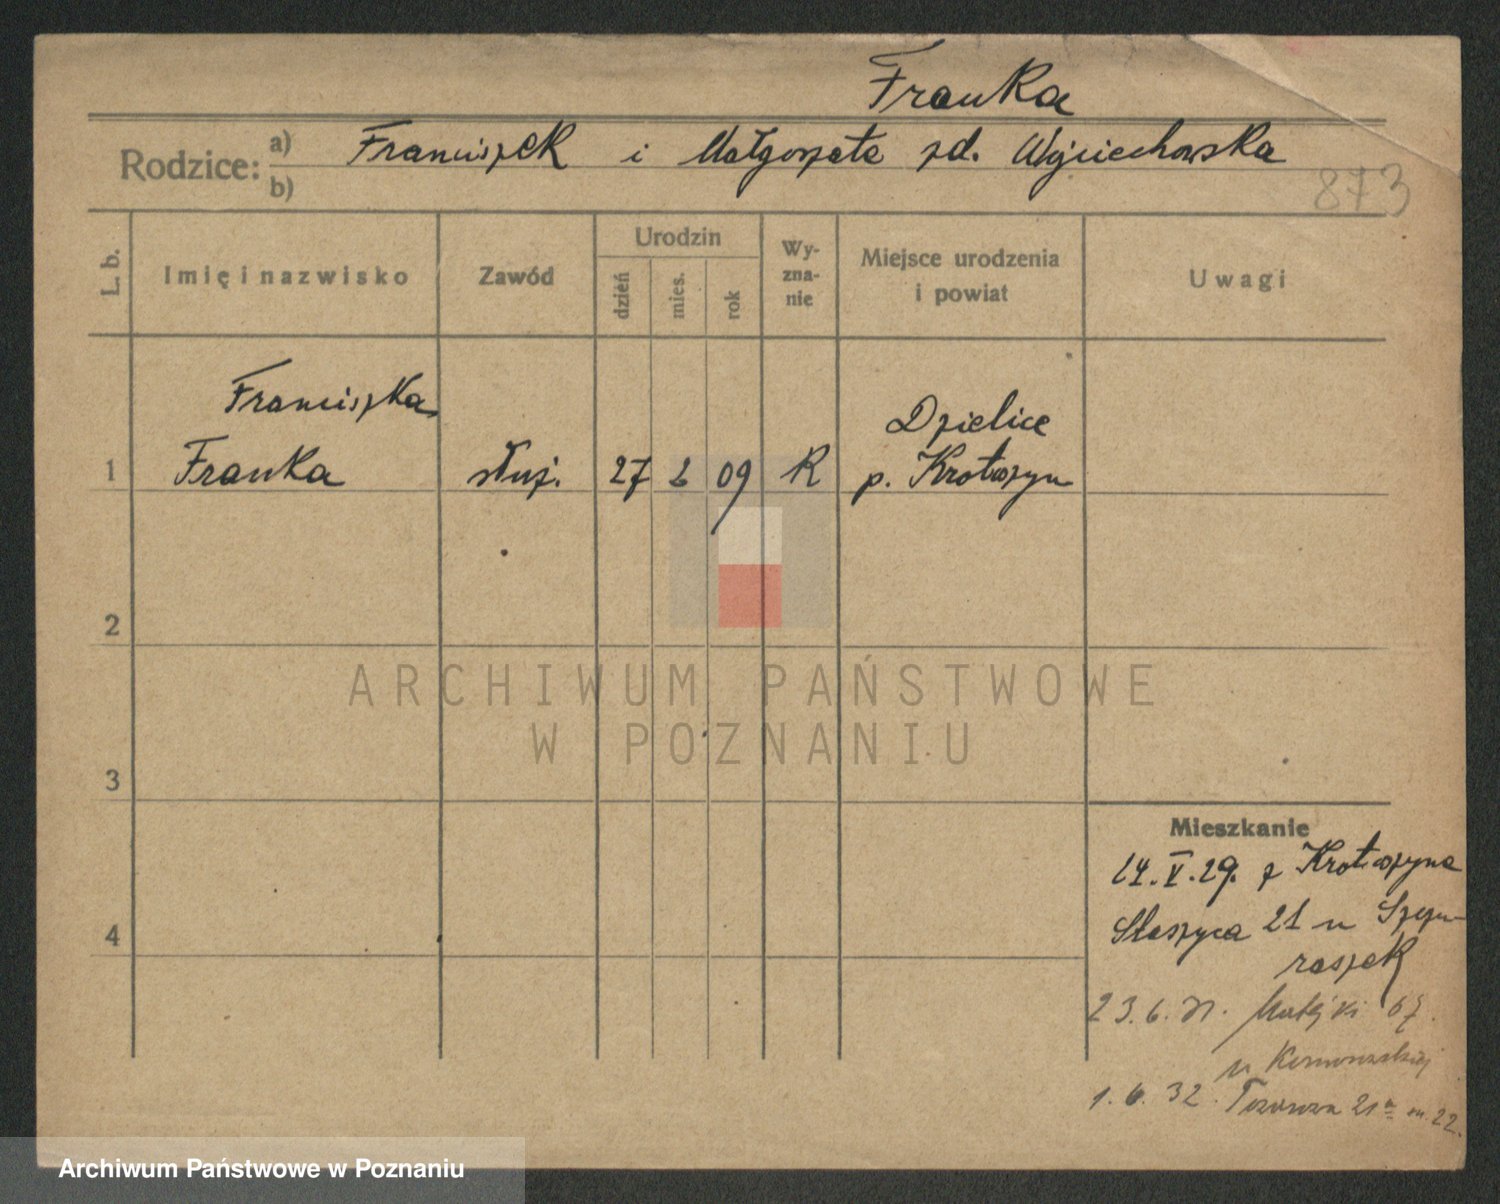 Franka
Rodzice: a) Franciszek i Małgorzata zd. Wojciechowska
b)
873
L. b.
Imię i nazwisko
Zawód
Urodzin
dzień
mies.
rok
Wy-
zna-
nie
Miejsce urodzenia
i powiat
Uwagi
Franciszka
Franka
1
służ.
27 2 09
R
Dzielice
p. Krotoszyn
2
ARCHIWUM PAŃSTWOWE
W POZNANIU
3
Mieszkanie
14.V.29. z Krotoszyna
4
Staszyca 21 u Szym-
raszek
23.6.31. Matejki 67.
u
1.6.32. 21a m. 22.
Archiwum Państwowe w Poznaniu